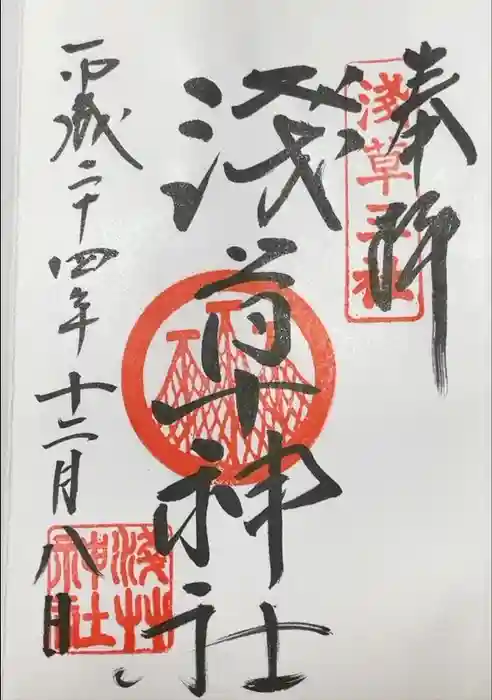 奉拝
淺草三社
浅草神社
平成二十四年十二月八日
淺草神社